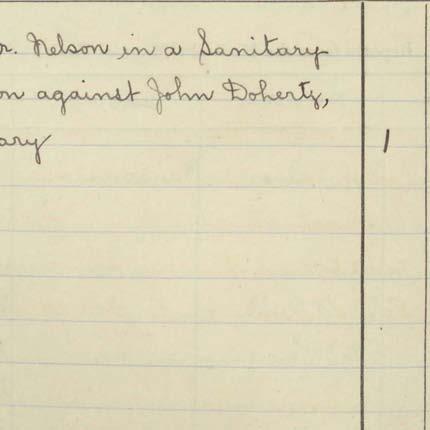 r. Nelson in a Sanitary
on against John Doherty,
ary 1